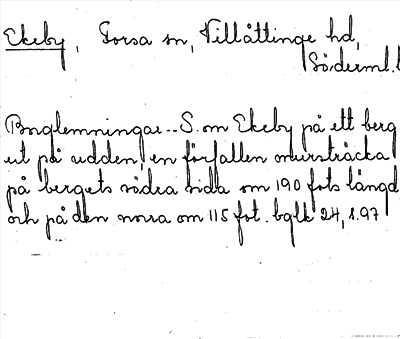 Ekeby, Forsa sn, Villåttinge hd,
Söderml.l
Borglemningar.. S. om Ekeby på ett berg
ut på udden, en förfallen mursträcka
på bergets södra sida om 190 fots längd
och på den norra om 115 fot. bglk 24, s.97